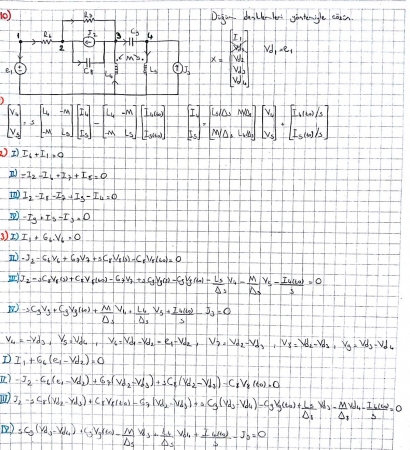 10)
Düğüm denklemleri yöntemiyle çözün.
R7
1 R6 2 J2 3 C9 4
C8 M
e1 L4 L5 J3
x = [I1 Vd1 Vd2 Vd3 Vd4] Vd1=e1
[V4 V5] = s [L4 -M -M L5] [I4 I5] - [L4 -M -M L5] [I4(t0) I5(t0)] [I4 I5] = [L5/Δs M/Δs M/Δs L4/Δs] [V4 V5] + [I4(t0)/s I5(t0)/s]
2) I) I6+I1=0
II) -I2-I6+I7+I8=0
III) I2-I8-I7+I9-I4=0
IV) -I9+I5-I3=0
3) I) I1+G6V6=0
II) -J2-G6V6+G7V7+sC8V8(s)-C8V8(t0)=0
III) J2-sC8V8(s)+C8V8(t0)-G7V7+sC9V9(s)-C9V9(t0)-L5/Δs V4-M/Δs V5-I4(t0)/s=0
IV) -sC9V9+C9V9(t0)+M/Δs V4+L4/Δs V5+I5(t0)/s-J3=0
V4=-Vd3, V5=Vd4, V6=Vd1-Vd2=e1-Vd2, V7=Vd2-Vd3, V8=Vd2-Vd3, V9=Vd3-Vd4
I) I1+G6(e1-Vd2)=0
II) -J2-G6(e1-Vd2)+G7(Vd2-Vd3)+sC8(Vd2-Vd3)-C8V8(t0)=0
III) J2-sC8(Vd2-Vd3)+C8V8(t0)-G7(Vd2-Vd3)+sC9(Vd3-Vd4)-C9V9(t0)+L5/Δs Vd3-M/Δs Vd4-I4(t0)/s=0
IV) -sC9(Vd3-Vd4)+C9V9(t0)-M/Δs Vd3+L4/Δs Vd4+I5(t0)/s-J3=0